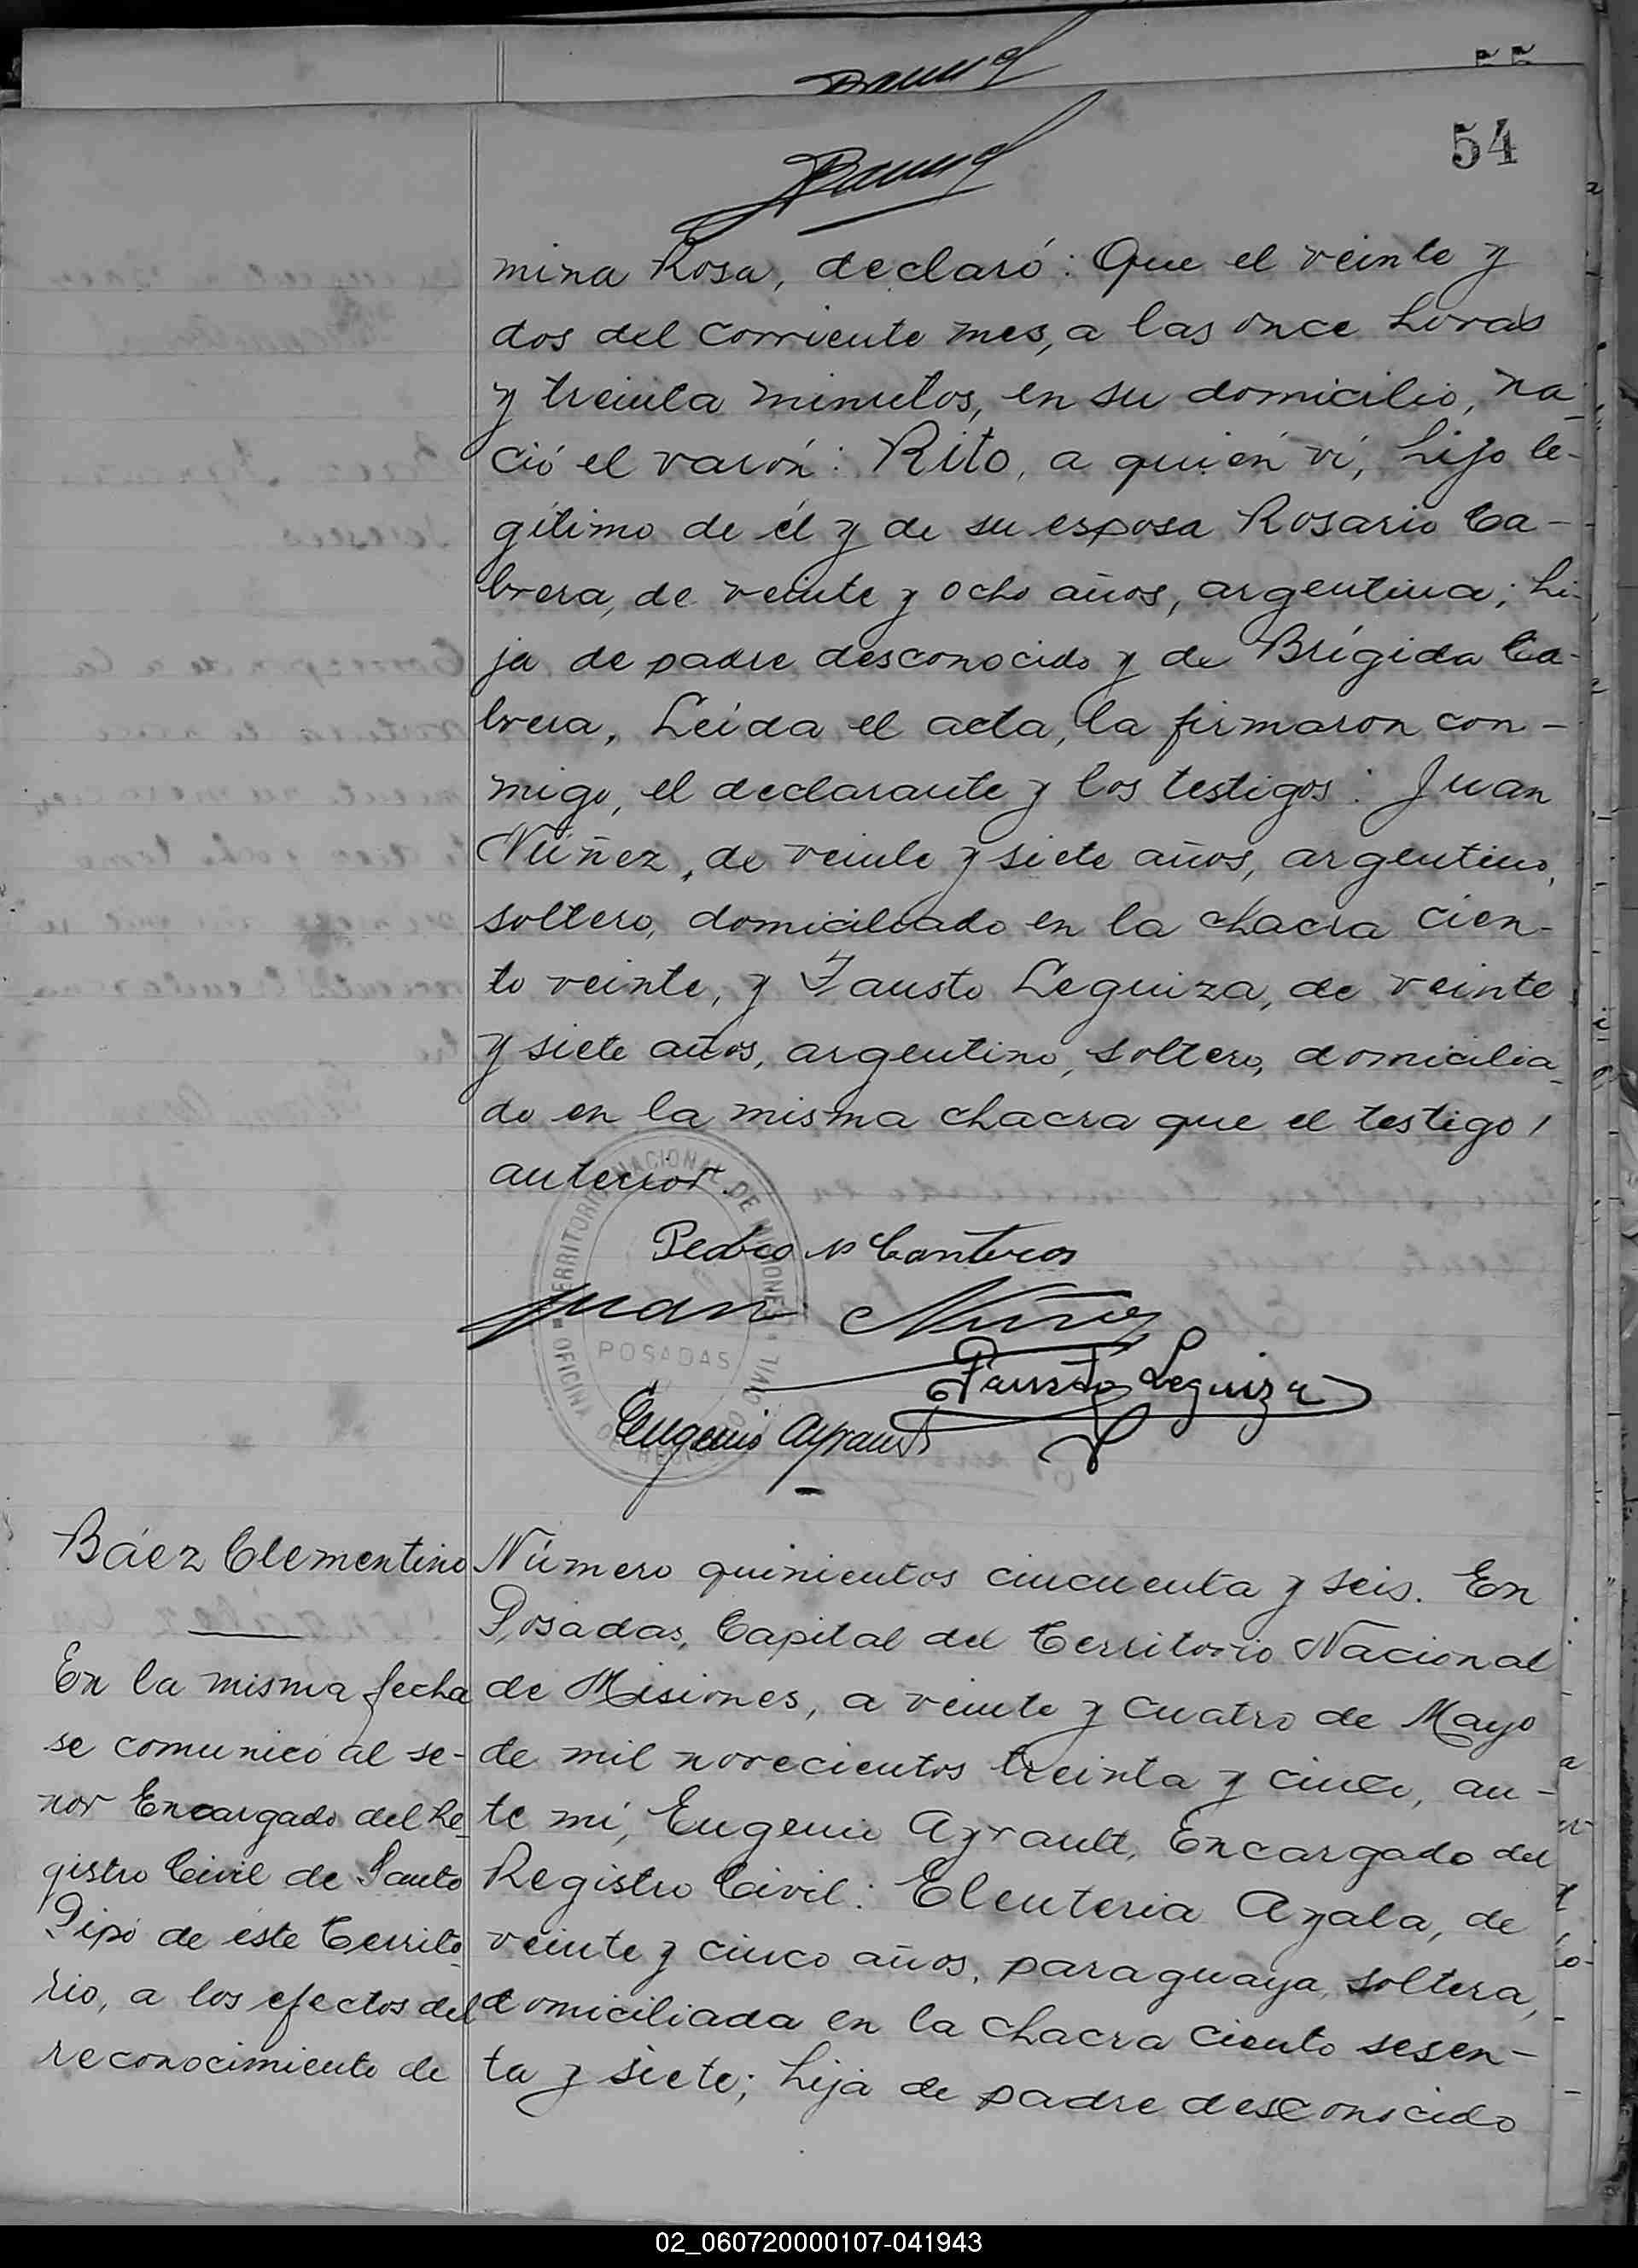 54
mina Rosa, declaró: Que el veinte y
dos del corriente mes, a las once horas
y treinta minutos, en su domicilio, na-
ció el varón: Rito, a quién ví, hijo le-
gítimo de él y de su esposa Rosario Ca-
brera, de veinte y ocho años, argentina; hi-
ja de padre desconocido y de Brígida Ca-
brera, Leída el acta, la firmaron con-
migo, el declarante y los testigos: Juan
Núñez, de veinte y siete años, argentino,
soltero, domiciliado en la chacra cien-
to veinte, y Fausto Leguiza, de veinte
y siete años, argentino, soltero, domicilia-
do en la misma chacra que el testigo
anterior.
Pedro N Canteros
Juan Núñez
Fausto Leguiza
Eugenio Ayrault
TERRITORIO NACIONAL DE MISIONES
POSADAS
OFICINA DE REGISTRO CIVIL
Báez Clementino
En la misma fecha
se comunicó al se-
nor Encargado del Re-
gistro Civil de Santo
Pipó de éste Territo-
rio, a los efectos del
reconocimiento de
Número quinientos cincuenta y seis. En
Posadas, Capital del Territorio Nacional
de Misiones, a veinte y cuatro de Mayo
de mil novecientos treinta y cinco, an-
te mí, Eugenio Ayrault, Encargado del
Registro Civil: Eleuteria Ayala, de
veinte y cinco años, paraguaya, soltera,
domiciliada en la chacra ciento sesen-
ta y siete; hija de padre desconocido
02_060720000107-041943